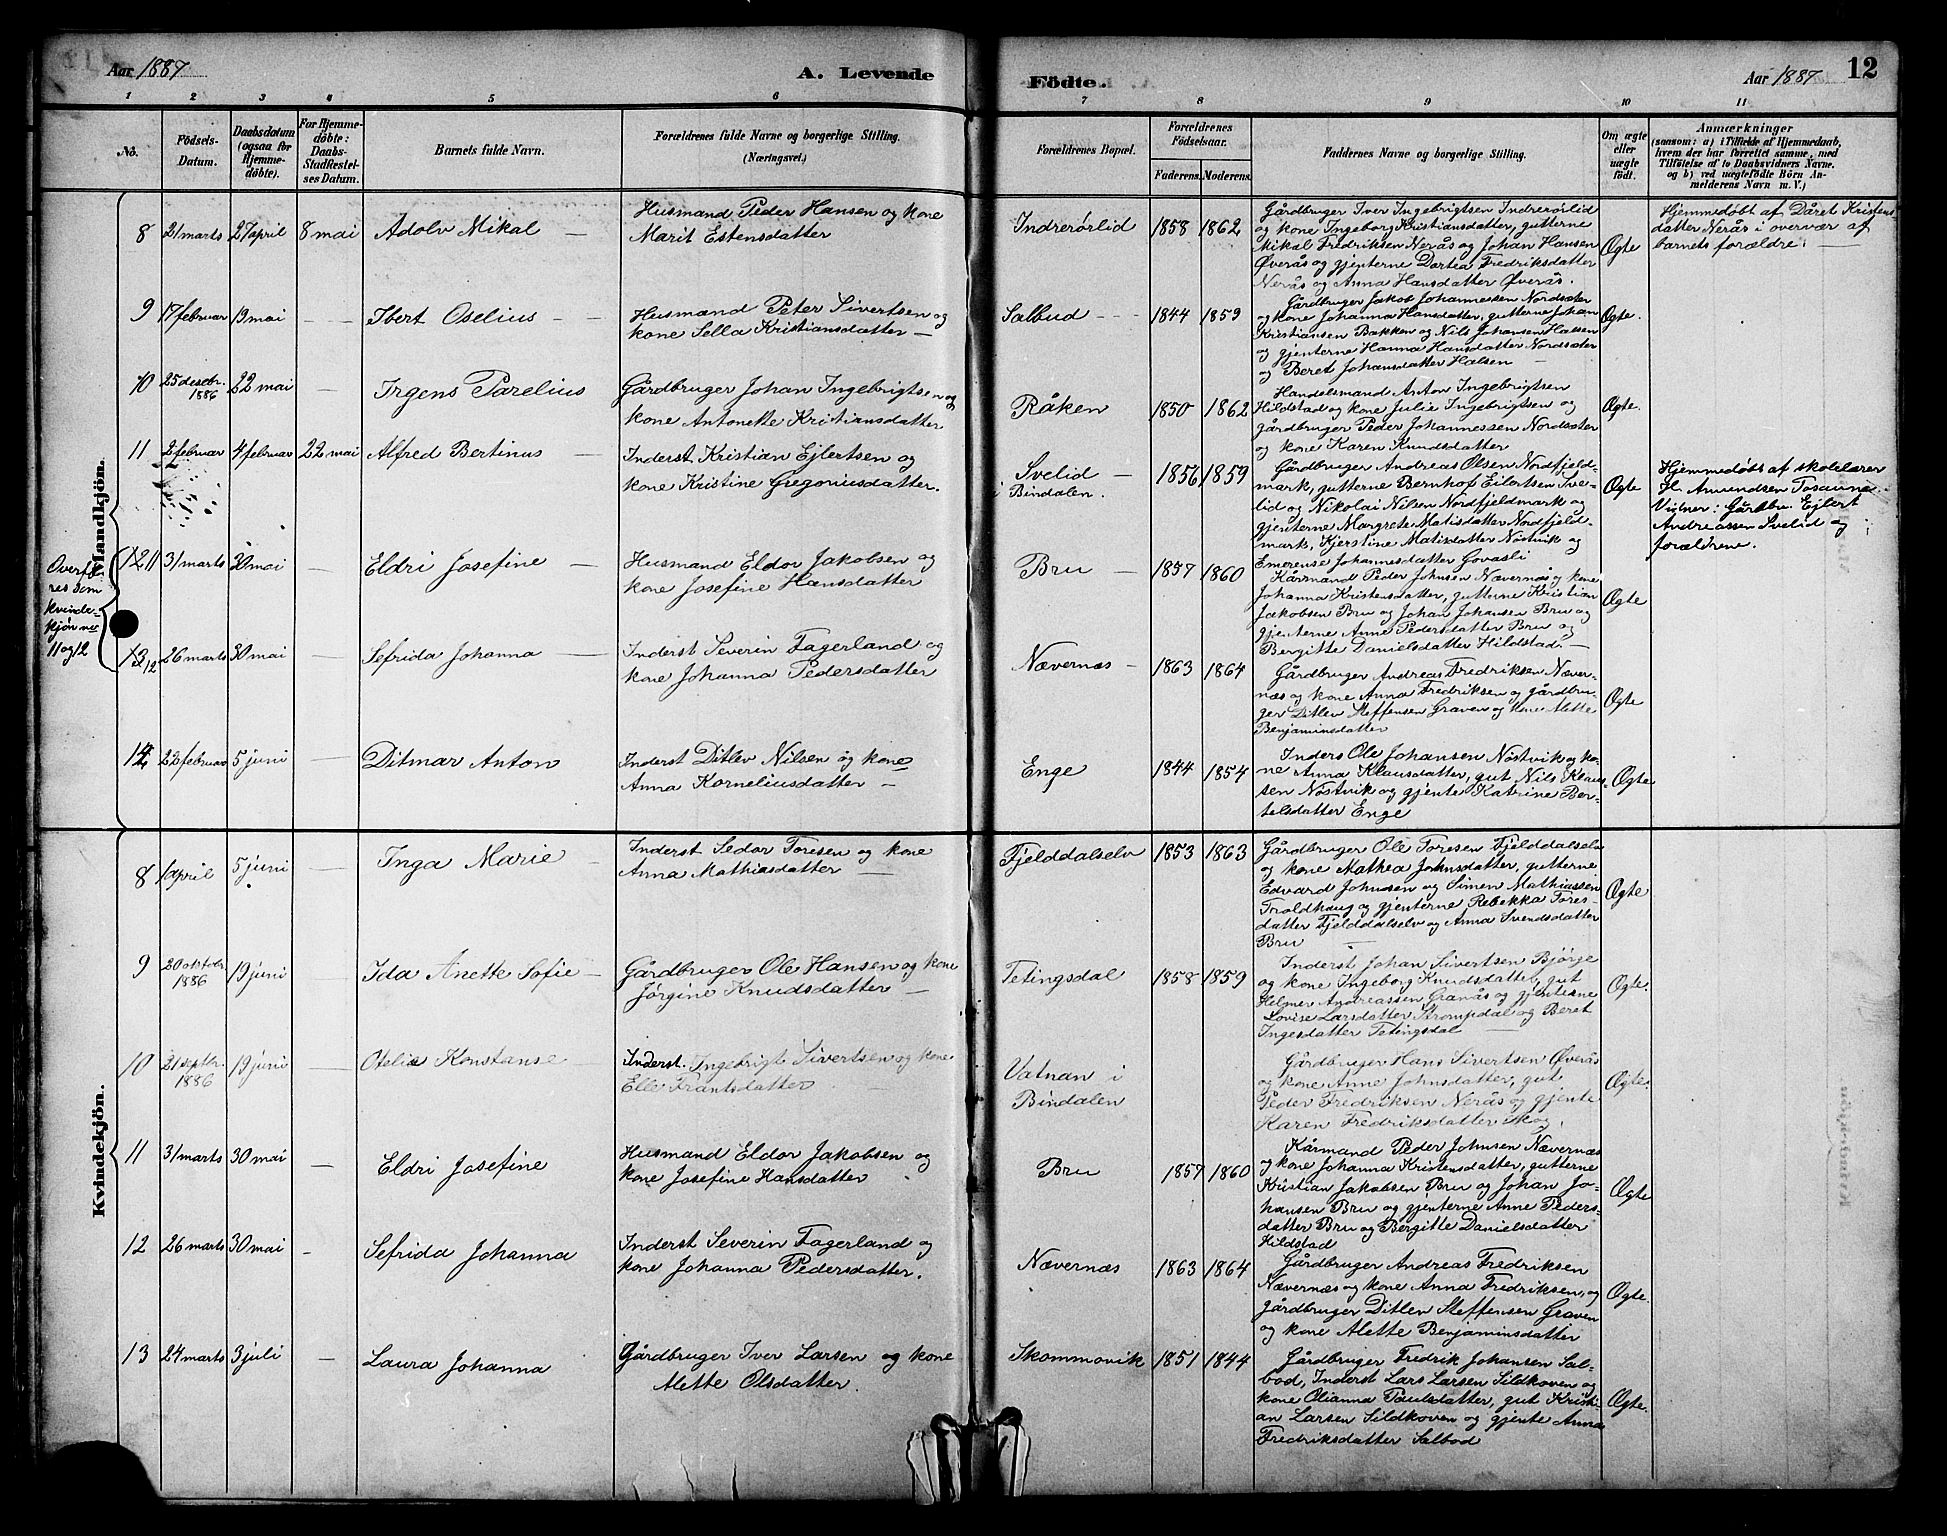 Aar 1887
A. Levende
Födte.
Aar 1887
12
1 2 3 4 5 6 7 8 9 10 11
No.
Födsels-
Datum.
Daabsdatum
(ogsaa for
Hjemme-
döbte).
For Hjemme-
döbte:
Daabs-
Stadfæstel-
ses Datum.
Barnets fulde Navn.
Forældrenes fulde Navne og borgerlige Stilling.
(Næringsvei.)
Forældrenes Bopæl.
Forældrenes
Födselsaar.
Faderens. Moderens.
Faddernes Navne og borgerlige Stilling.
Om ægte
eller
uægte
födt.
Anmærkninger
(saasom: a) i Tilfælde af Hjemmedaab,
hvem der har forrettet samme, med
Tilföielse af to Daabsvidners Navne.
og b) ved uægtefödte Börn An-
melderens Navn m. V.)
Mandkjön.
8 21 marts 27 april 8 mai Adolv Mikal
Husmand Peder Hansen og kone
Marit Estensdatter
Indrerørlid 1858 1862
Gårdbruger Iver Ingebrigtsen Indrerørlid
og kone Ingeborg Kristiansdatter, gutterne
Mikal Fredriksen Nerås og Johan Hansen
Øverås og gjenterne Dortea Fredriksdatter
Nerås og Anna Hansdatter Øverås.
Ægte
Hjemmedøbt af Dåret Kristens
datter Nerås i overvær af
barnets forældre.
9 17 februar 19 mai Ibert Oselius
Husmand Peter Sivertsen og
kone Sella Kristiansdatter
Salbud 1844 1859
Gårdbruger Jakob Johannessen Nordsæter
og kone Johanna Hansdatter, gutterne Johan
Kristiansen Bakken og Nils Johansen Halsen
og gjenterne Hanna Hansdatter Nordsæter
og Beret Johansdatter Halsen
Ægte.
10 25 desebr. 1886 22 mai Irgens Parelius
Gårdbruger Johan Ingebrigtsen og
kone Antonette Kristiansdatter
Råken 1850 1862
Handelsmand Anton Ingebrigtsen
Hildstad og kone Julie Ingebrigtsen og
gårdbruger Peder Johannessen Nordsæter
og kone Karen Knudsdatter
Ægte.
11 2 februar 4 februar 22 mai Alfred Bertinus
Inderst Kristian Ejlertsen og
kone Kristine Gregoriusdatter.
Svelid
i Bindalen. 1856 1859
Gårdbruger Andreas Olsen Nordfjeld-
mark, gutterne Bernhof Eilertsen Sve-
lid og Nikolai Nilsen Nordfjeldmark og
gjenterne Margrete Matisdatter Nordfjeld-
mark, Kjerstine Matisdatter Nøstvik og
Emerense Johannesdatter Govasli
Ægte
Hjemmedøbt af skolelærer
Hl. Amundsen Tosaune
Vidner: Gårdbr. Ejlert
Andreassen Svelid og
forældrene.
Overfø-
res som
kvinde-
kjøn no
11 og 12
12 11 31 marts 30 mai Eldri Josefine
Husmand Eldor Jakobsen og
kone Josefine Hansdatter
Bru 1857 1860
Kårmand Peder Johnsen Nævernæs og kone
Johanna Kristensdatter, gutterne Kristian
Jakobsen Bru og Johan Johansen Bru og
gjenterne Anne Pedersdatter Bru og
Bergitte Danielsdatter Hildstad.
Ægte
13 12 26 marts 30 mai Sefrida Johanna
Inderst Severin Fagerland og
kone Johanna Pedersdatter
Nævernæs 1863 1864
Gårdbruger Andreas Fredriksen Næver-
næs og kone Anna Fredriksen og gårdbru-
ger Ditlev Steffensen Graven og kone Alette
Benjaminsdatter
Ægte
12 22 februar 5 juni Ditmar Anton
Inderst Ditlev Nilsen og kone
Anna Korneliusdatter
Enge 1844 1854
Inders Ole Johansen Nøstvik og ko-
ne Anna Klausdatter, gut Nils Klaus-
sen Nøstvik og gjente Katrine Ber-
telsdatter Enge
Ægte
Kvindekjön.
8 1 april 5 juni Inga Marie
Inderst Sedor Toresen og kone
Anna Mathiasdatter
Fjelddalselv 1853 1863
Gårdbruger Ole Toresen Fjelddalselv
og kone Mathea Johnsdatter, gutterne
Edvard Johnsen og Simen Mathiassen
Troldhaug og gjenterne Rebekka Tores-
datter Fjelddalselv og Anna Svendsdatter
Bru
Ægte
9 20 oktobr 1886 19 juni Ida Anette Sofie
Gårdbruger Ole Hansen og kone
Jørgine Knudsdatter
Tetingsdal 1858 1859
Inderst Johan Sivertsen Bjørge
og kone Ingeborg Knudsdatter, gut
Helmer Andreassen Granås og gjenterne
Lovise Larsdatter Strompdal og Beret
Ingesdatter Tetingsdal
Ægte.
10 21 septbr. 1886 19 juni Otelie Konstanse
Inderst. Ingebrigt Sivertsen og kone
Elle Frantsdatter.
Vatnan i
Bindalen
Gårdbruger Hans Sivertsen Øverås
og kone Anne Johnsdatter, gut
Peder Fredriksen Nerås og gjente
Karen Fredriksdatter Skog.
Ægte.
11 31 marts 30 mai Eldri Josefine
Husmand Eldor Jakobsen og
kone Josefine Hansdatter
Bru 1857 1860
Kårmand Peder Johnsen Nævernæs
og kone Johanna Kristensdatter, gutterne
Kristian Jakobsen Bru og Johan Jo-
hansen Bru og gjenterne Anne Peders-
datter Bru og Bergitte Danielsdatter
Hildstad
Ægte
12 26 marts 30 mai Sefrida Johanna
Inderst Severin Fagerland og
kone Johanna Pedersdatter.
Nævernæs 1863 1864
Gårdbruger Andreas Fredriksen
Nævernæs og kone Anna Fredriksen, og
gårdbruger Ditlev Steffensen Graven
og kone Alette Benjaminsdatter
Ægte.
13 24 marts 3 juli Laura Johanna
Gårdbruger Iver Larsen og kone
Alette Olsdatter.
Skommovik 1851 1844
Gårdbruger Fredrik Johansen Sal-
bod, Inderst Lars Larsen Sildkoven og
kone Olianna Paulsdatter, gut Kristi-
an Larsen Sildkoven og gjente Anna
Fredriksdatter Salbod
Ægte.